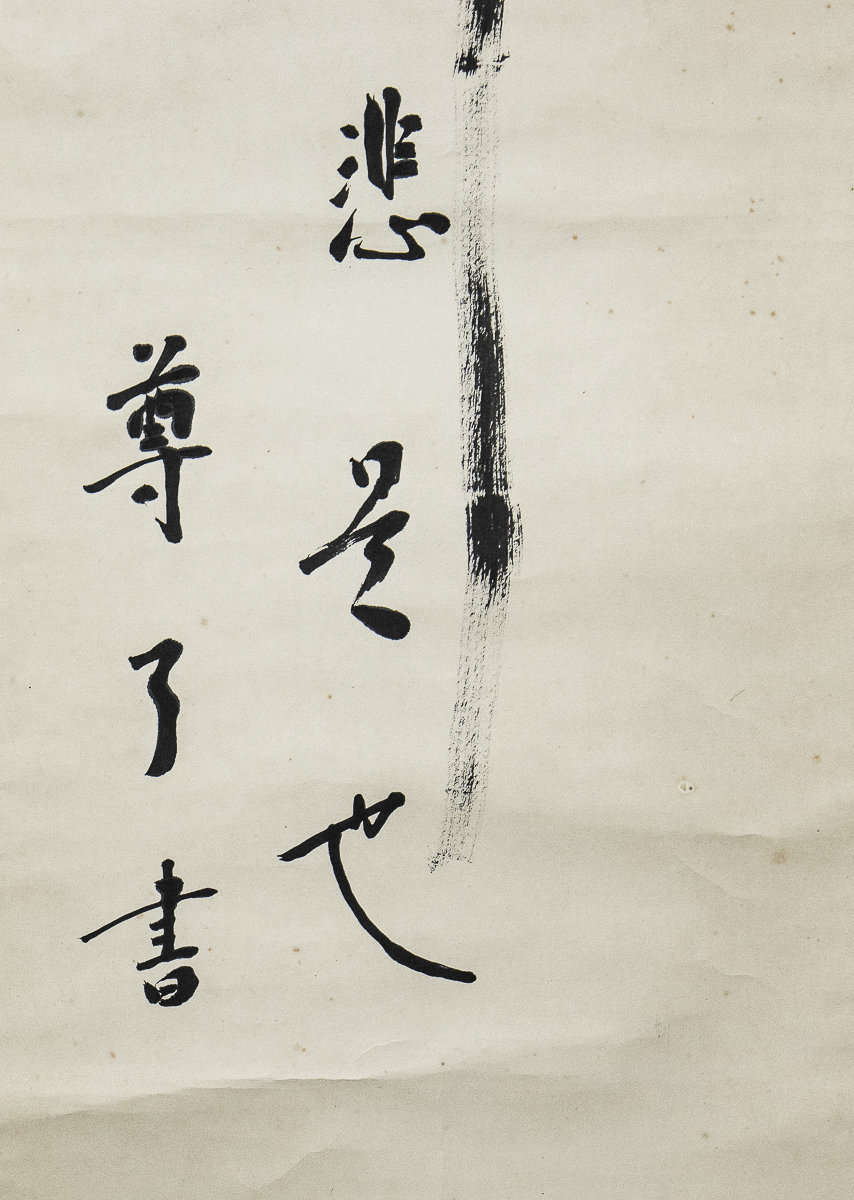 悲是也
尊了書